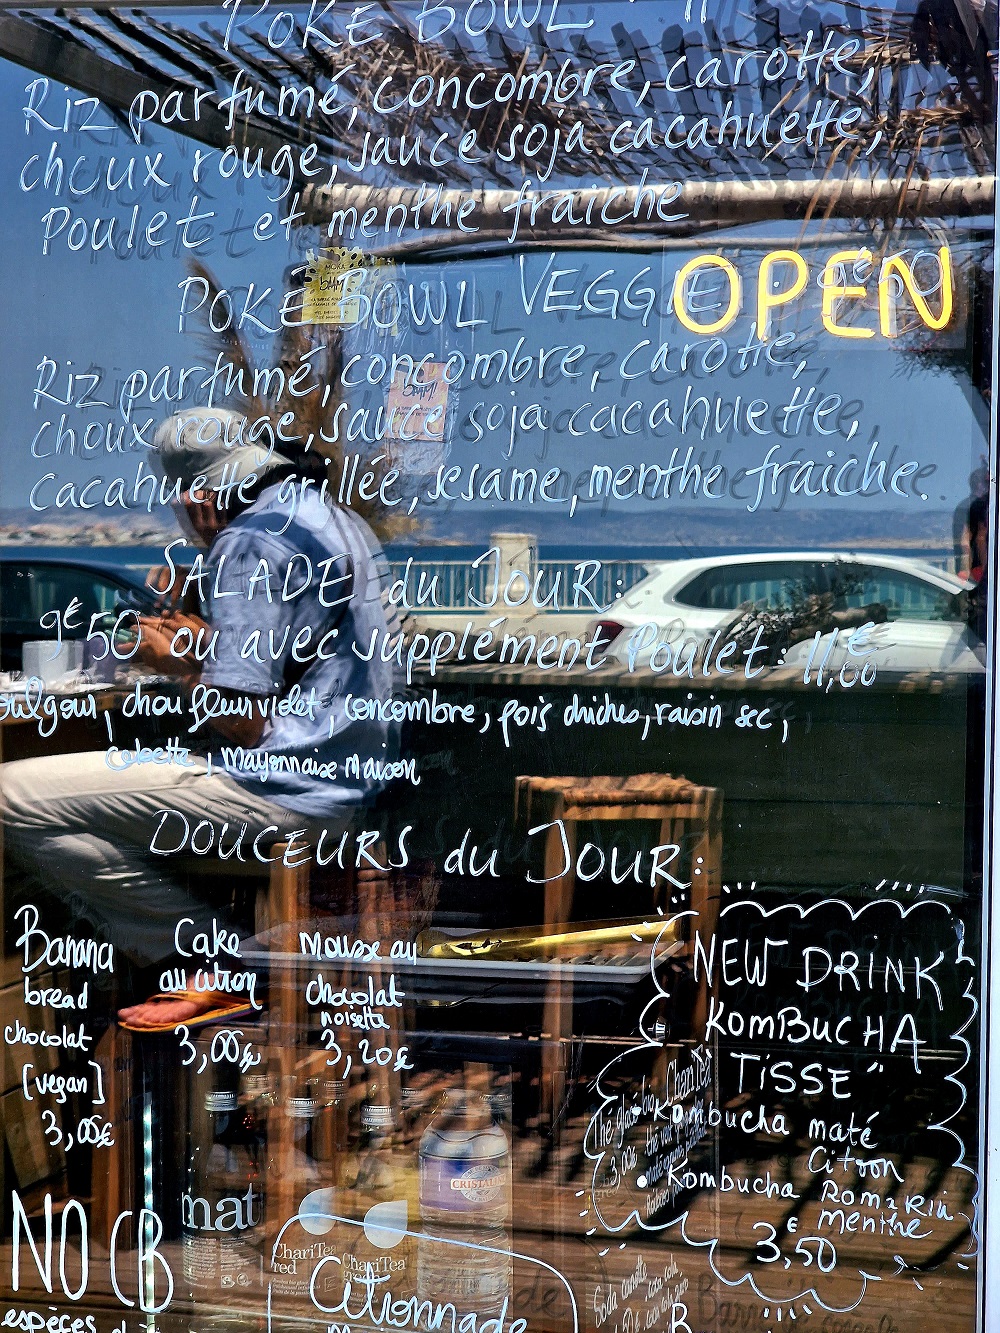 POKE BOWL
Riz parfumé, concombre, carotte,
choux rouge, sauce soja cacahuette,
Poulet et menthe fraiche
POKE BOWL VEGGIE
OPEN
Riz parfumé, concombre, carotte,
choux rouge, sauce soja cacahuette,
cacahuette grillée, sesame, menthe fraiche.
SALADE du JOUR:
9€50 ou avec supplément Poulet: 11,00€
oulgour, chou fleur violet, concombre, pois chiches, raisin sec,
Mayonnaise Maison
DOUCEURS du JOUR:
Banana
bread
chocolat
[vegan]
3,00€
Cake
au citron
3,00€
Mousse au
chocolat
noisette
3,20€
NEW DRINK
KOMBUCHA
TISSE"
• Kombucha maté
Citron
• Kombucha Romarin
menthe
3,50€
ChariTea
Thé glacé bio
CRISTALINE
mate
ChariTea
red
ChariTea
green
NO CB
espèces
Citronnade